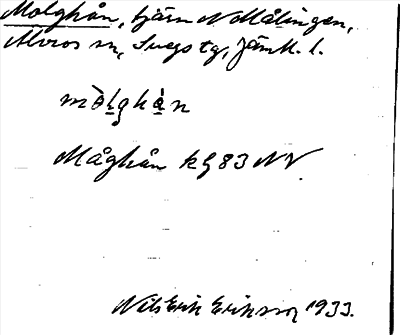 Molghån, tjärn N Målingen,
Älvros sn, Svegs tg, Jämtl. l.
mòlghàn
Måghån kg 83 NV
Nils Erik Eriksson 1933.